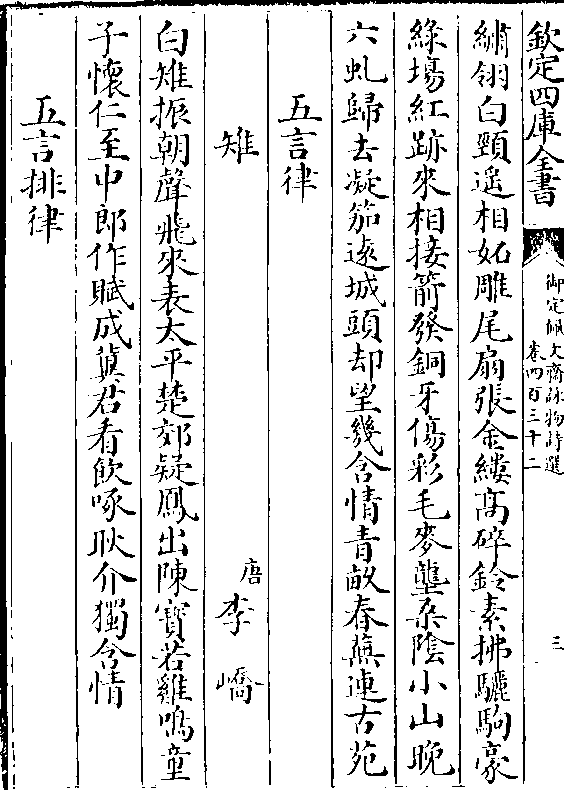 欽定四庫全書
御定佩文齋詠物詩選
卷四百三十二
三
繡翎白頸遥相妬雕尾扇張金縷髙碎鈴素拂驪駒豪
綠塲紅跡來相接箭發銅牙傷彩毛麥壟桑陰小山晚
六虬歸去凝笳逺城頭却望幾含情青畝春蕪連古苑
五言律
雉
唐李嶠
白雉振朝聲飛來表太平楚郊疑鳳出陳寳若雞鳴童
子懷仁至中郎作賦成冀君看飲啄耿介獨含情
五言排律